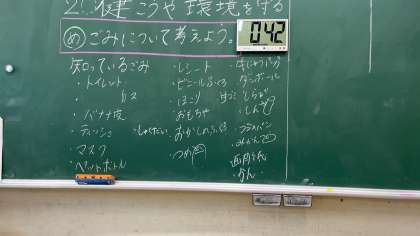 健こうや環境を守る
め ごみについて考えよう。
042
知っているごみ
・トイレット
カス
・バナナ皮
・ティッシュ
・マスク
・ペットボトル
・レシート
・ビニールぶくろ
・ほこり
おもちゃ
・おかしのふくろ
・つめ
ダンボール
・フライパン
・みかん
画用紙
・かん